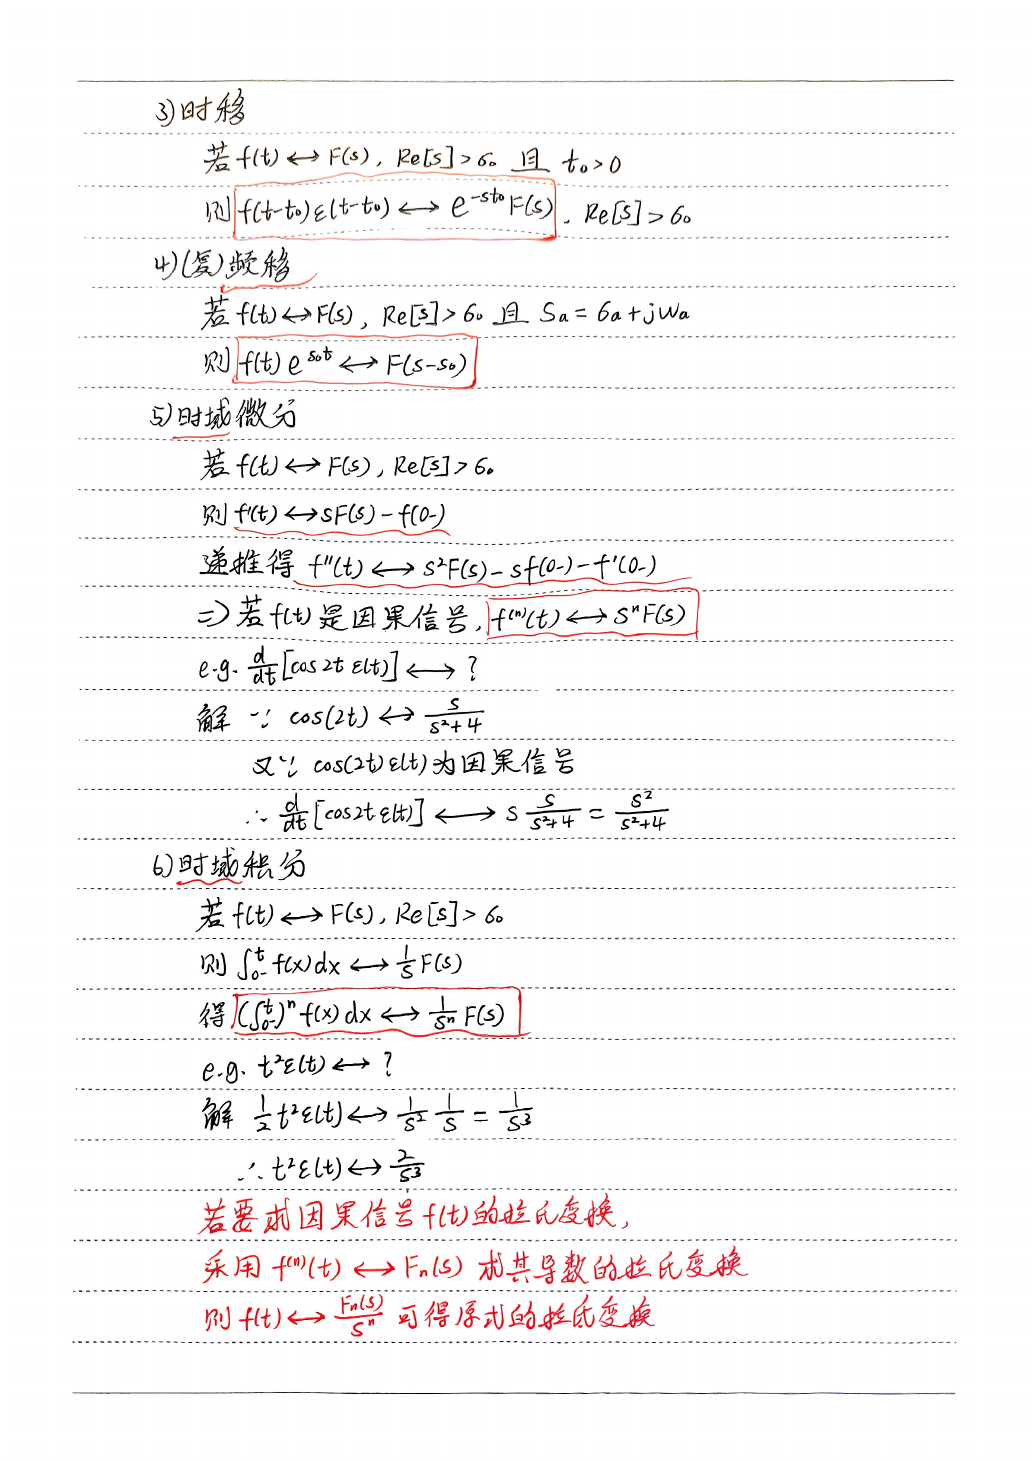 3)时移
若 f(t)↔F(s), Re[s]>σ₀ 且 t₀>0
则 f(t-t₀)ε(t-t₀)↔e^{-st₀}F(s), Re[s]>σ₀
4)(复)频移
若 f(t)↔F(s), Re[s]>σ₀ 且 Sa=σa+jωa
则 f(t)e^{s₀t}↔F(s-s₀)
5)时域微分
若 f(t)↔F(s), Re[s]>σ₀
则 f'(t)↔sF(s)-f(0-)
递推得 f''(t)↔s²F(s)-sf(0-)-f'(0-)
=>若f(t)是因果信号, f⁽ⁿ⁾(t)↔sⁿF(s)
e.g. d/dt[cos2t ε(t)]↔?
解 ∵ cos(2t)↔s/(s²+4)
又∵ cos(2t)ε(t)为因果信号
∴ d/dt[cos2t ε(t)]↔s s/(s²+4) = s²/(s²+4)
6)时域积分
若 f(t)↔F(s), Re[s]>σ₀
则 ∫₀₋ᵗ f(x)dx↔1/s F(s)
得 (∫₀₋ᵗ)ⁿ f(x)dx↔1/sⁿ F(s)
e.g. t²ε(t)↔?
解 1/2 t²ε(t)↔1/s² 1/s = 1/s³
∴ t²ε(t)↔2/s³
若要求因果信号f(t)的拉氏变换,
采用 f⁽ⁿ⁾(t)↔Fn(s) 求其导数的拉氏变换
则 f(t)↔Fn(s)/sⁿ 可得原式的拉氏变换